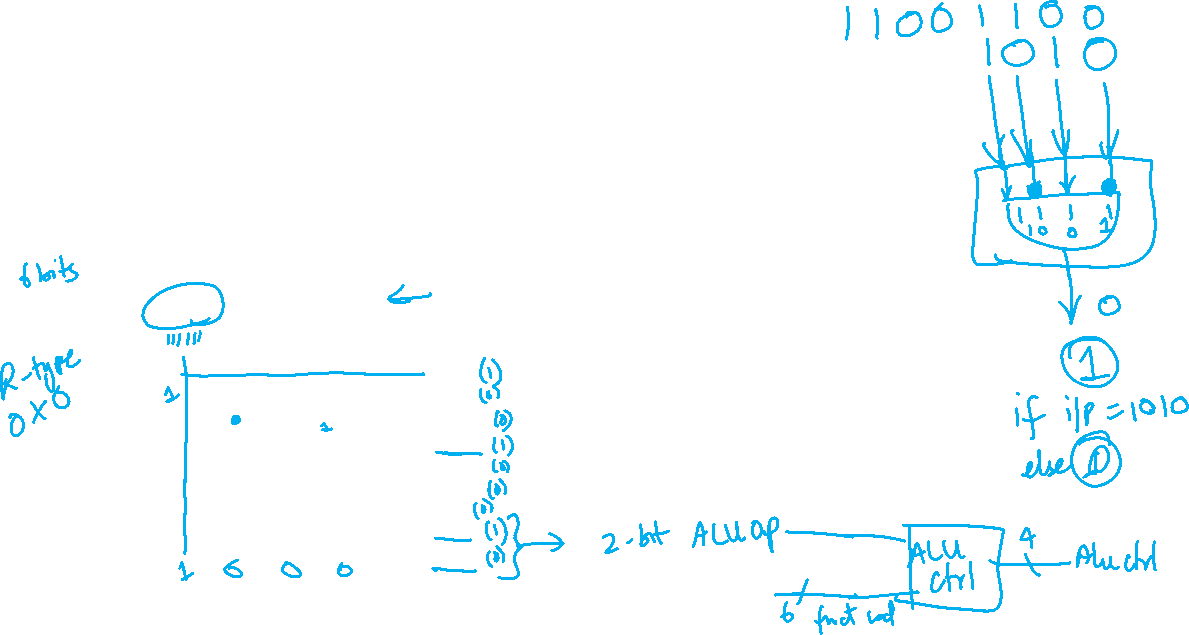 1 1 0 0 1 1 0 0
1 0 1 0
1 1 1 1
1 0 0 1
0
1
if i/p = 1010
else 0
6 bits
R-type
0x0
1
1
(1)
(0)
(0)
(1)
(0)
(0)
(0)
(1)
(0)
1 0 0 0
2-bit ALU op
ALU
ctrl
4
Alu ctrl
6
funct